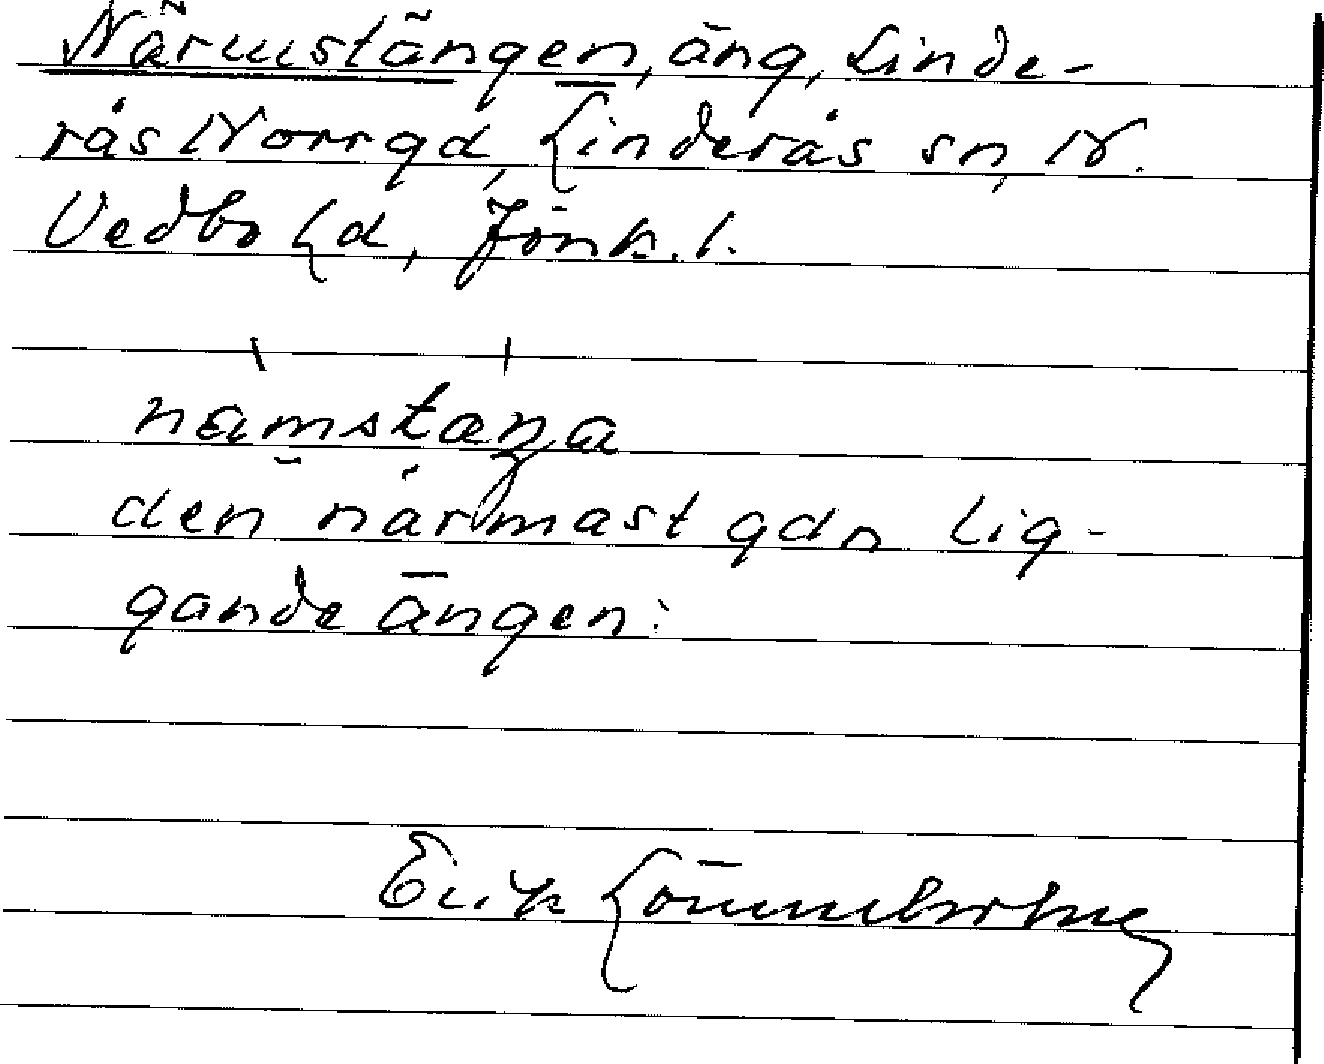 Närmstängen, äng, Linde-
rås Norrgd, Linderås sn, N.
Vedbo hd, Jönk. l.
nämstæŋa
den närmast gdn lig-
gande ängen:
Erik